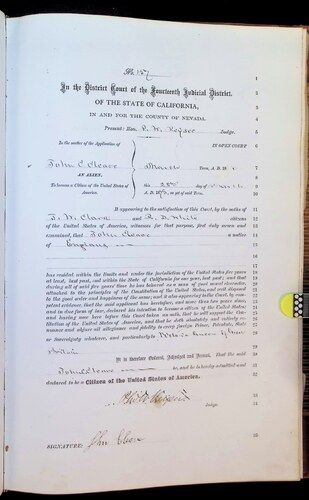 No 157
In the District Court of the Fourteenth Judicial District,
OF THE STATE OF CALIFORNIA,
IN AND FOR THE COUNTY OF NEVADA.
Present: Hon. Judge.
In the matter of the Application of
IN OPEN COURT
John
March Term, A. D. 18
AN ALIEN,
To become a Citizen of the United States of America.
this day of March
A. D. 187 , as yet of said Term.
It appearing to the satisfaction of this Court, by the oaths of
and citizens
of the United States of America, witnesses for that purpose, first duly sworn and
examined, that John a native
of England
has resided within the limits and under the jurisdiction of the United States five years
at least, last past, and within the State of California for one year, last past; and that
during all of said five years' time he has behaved as a man of good moral character,
attached to the principles of the Constitution of the United States, and well disposed
to the good order and happiness of the same; and it also appearing to the Court, by com-
petent evidence, that the said applicant has heretofore, and more than two years since,
and in due form of law, declared his intention to become a citizen of the United States;
and having now here before this Court taken an oath, that he will support the Con-
stitution of the United States of America, and that he doth absolutely and entirely re-
nounce and abjure all allegiance and fidelity to every foreign Prince, Potentate, State
or Sovereignty whatever, and particularly to Victoria Queen of Great
Britain
It is therefore Ordered, Adjudged and Decreed, that the said
John be, and he is hereby admitted and
declared to be a Citizen of the United States of America.
Judge.
SIGNATURE: John